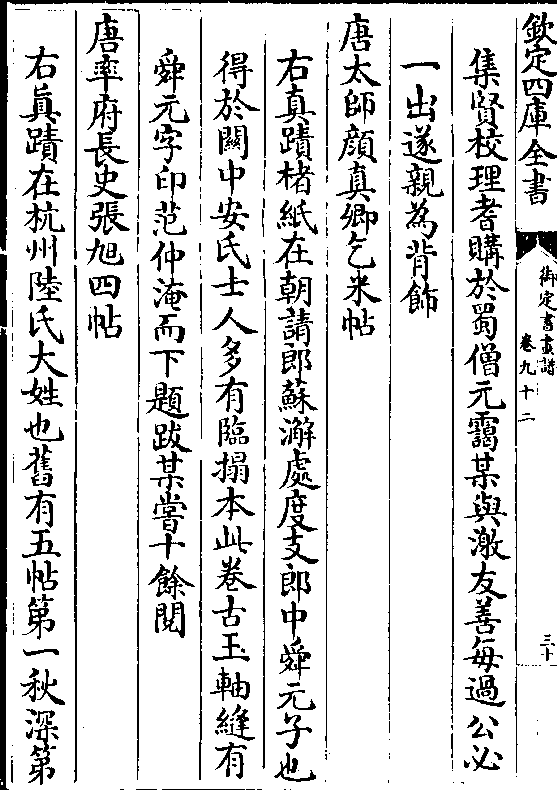 欽定四庫全書
御定書畫譜
卷九十二
三十
集賢校理耆購於蜀僧元靄某與激友善每過公必
一出遂親為背飾
唐太師顔真卿乞米帖
右真蹟楮紙在朝請郎蘇澥處度支郎中舜元子也
得於關中安氏士人多有臨搨本此卷古玉軸縫有
舜元字印范仲淹而下題跋某嘗十餘閱
唐率府長史張旭四帖
右眞蹟在杭州陸氏大姓也舊有五帖第一秋深第